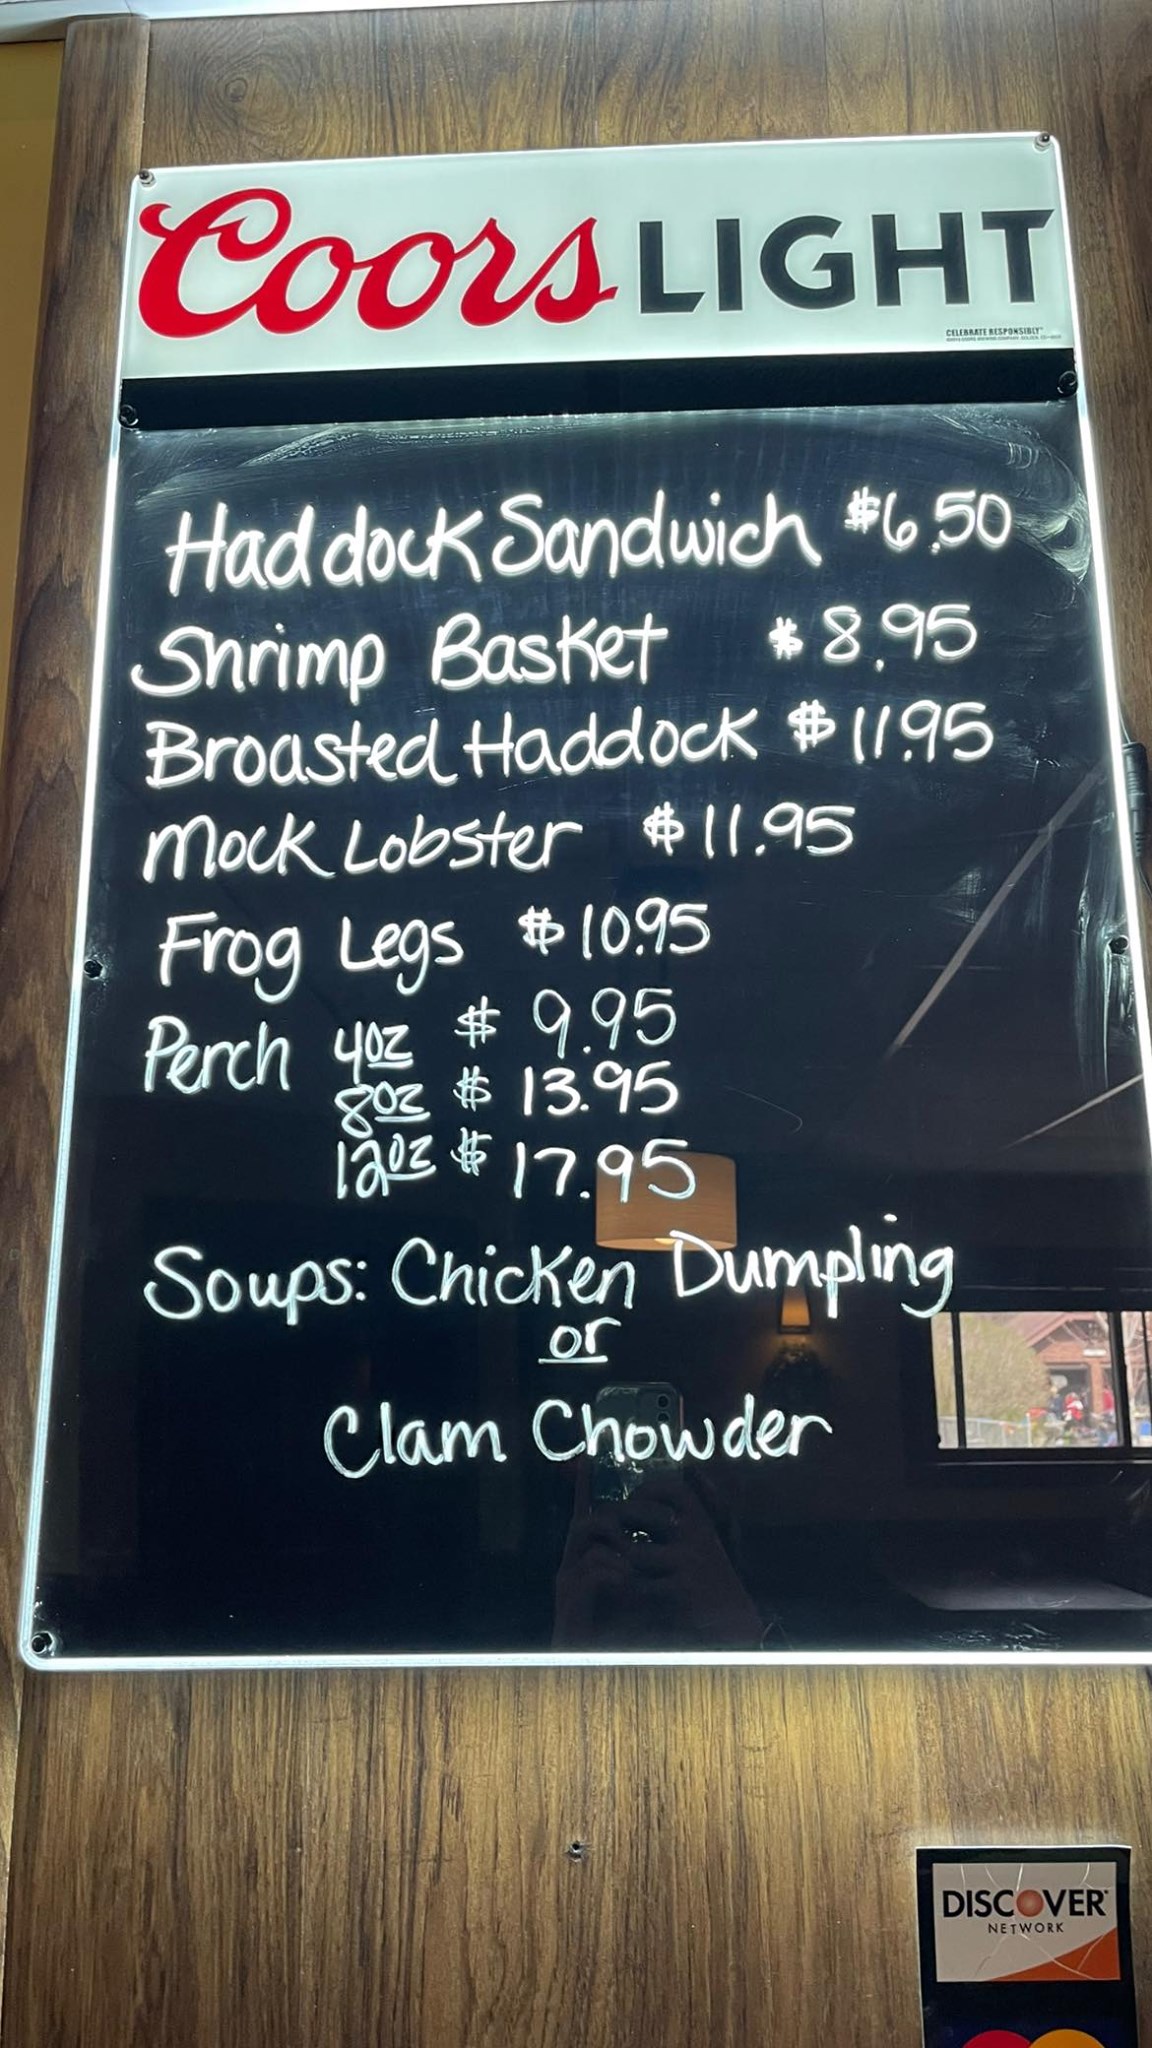 Coors LIGHT
CELEBRATE RESPONSIBLY
Haddock Sandwich $6.50
Shrimp Basket $8.95
Broasted Haddock $11.95
Mock Lobster $11.95
Frog Legs $10.95
Perch 4oz $9.95
8oz $13.95
12oz $17.95
Soups: Chicken Dumpling
or
Clam Chowder
DISCOVER
NETWORK